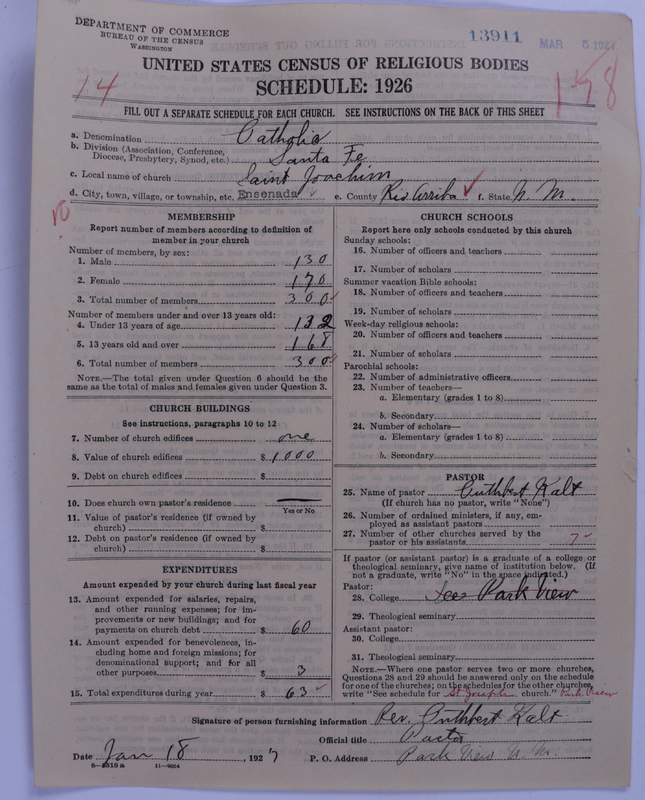 DEPARTMENT OF COMMERCE
BUREAU OF THE CENSUS
WASHINGTON
13911
MAR 5 1927
UNITED STATES CENSUS OF RELIGIOUS BODIES
SCHEDULE: 1926
14
178
FILL OUT A SEPARATE SCHEDULE FOR EACH CHURCH. SEE INSTRUCTIONS ON THE BACK OF THIS SHEET
a. Denomination Catholic
b. Division (Association, Conference, Diocese, Presbytery, Synod, etc.) Santa Fe
c. Local name of church Saint Joachim
d. City, town, village, or township, etc. Ensenada e. County Rio Arriba f. State N. M.
MEMBERSHIP
Report number of members according to definition of
member in your church
Number of members, by sex:
1. Male 130
2. Female 170
3. Total number of members 300
Number of members under and over 13 years old:
4. Under 13 years of age 132
5. 13 years old and over 168
6. Total number of members 300
NOTE.—The total given under Question 6 should be
same as the total of males and females given under Question 3.
CHURCH BUILDINGS
See instructions, paragraphs 10 to 12
7. Number of church edifices one
8. Value of church edifices $ 1000
9. Debt on church edifices $
10. Does church own pastor's residence —
Yes or No
11. Value of pastor's residence (if owned by
church) $
12. Debt on pastor's residence (if owned by
church) $
EXPENDITURES
Amount expended by your church during last fiscal year
13. Amount expended for salaries, repairs,
and other running expenses; for im-
provements or new buildings; and for
payments on church debt $ 60
14. Amount expended for benevolences, in-
cluding home and foreign missions; for
denominational support; and for all
other purposes $ 3
15. Total expenditures during year $ 63
CHURCH SCHOOLS
Report here only schools conducted by this church
Sunday schools:
16. Number of officers and teachers
17. Number of scholars
Summer vacation Bible schools:
18. Number of officers and teachers
19. Number of scholars
Week-day religious schools:
20. Number of officers and teachers
21. Number of scholars
Parochial schools:
22. Number of administrative officers
23. Number of teachers—
a. Elementary (grades 1 to 8)
b. Secondary
24. Number of scholars—
a. Elementary (grades 1 to 8)
b. Secondary
PASTOR
25. Name of pastor Cuthbert Kalt
(If church has no pastor, write "None")
26. Number of ordained ministers, if any, em-
ployed as assistant pastors
27. Number of other churches served by the
pastor or his assistants 7
If pastor (or assistant pastor) is a graduate of a college or
theological seminary, give name of institution below. (If
not a graduate, write "No" in the space indicated.)
Pastor:
28. College See Park View
29. Theological seminary
Assistant pastor:
30. College
31. Theological seminary
NOTE.—Where one pastor serves two or more churches,
Questions 28 and 29 should be answered only on the schedule
for one of the churches; on the schedules for the other churches,
write "See schedule for St Joseph church." Park View
Signature of person furnishing information Rev. Cuthbert Kalt
Official title Pastor
Date Jan 18, 1927 P. O. Address Park View N. M.
8—5518a 11—9664